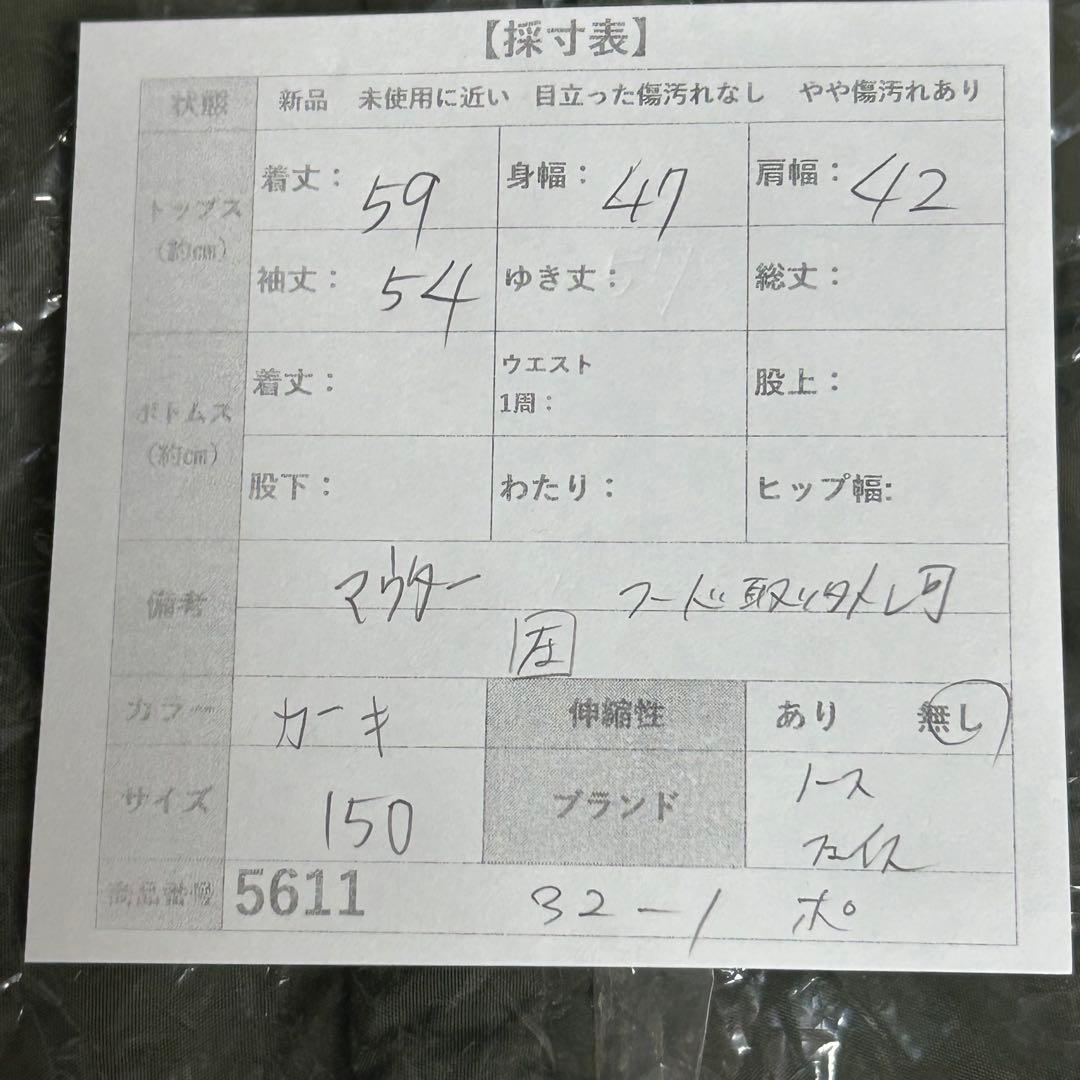 【採寸表】
状態 新品 未使用に近い 目立った傷汚れなし やや傷汚れあり
トップス
(約cm)
着丈： 59 身幅： 47 肩幅： 42
袖丈： 54 ゆき丈： 総丈：
ボトムス
(約cm)
着丈： ウエスト
1周： 股上：
股下： わたり： ヒップ幅:
備考 マウター フード取り外し可
カラー カーキ 伸縮性 あり 無し
サイズ 150 ブランド ノース
フェイス
商品番号 5611 32-1 ポ